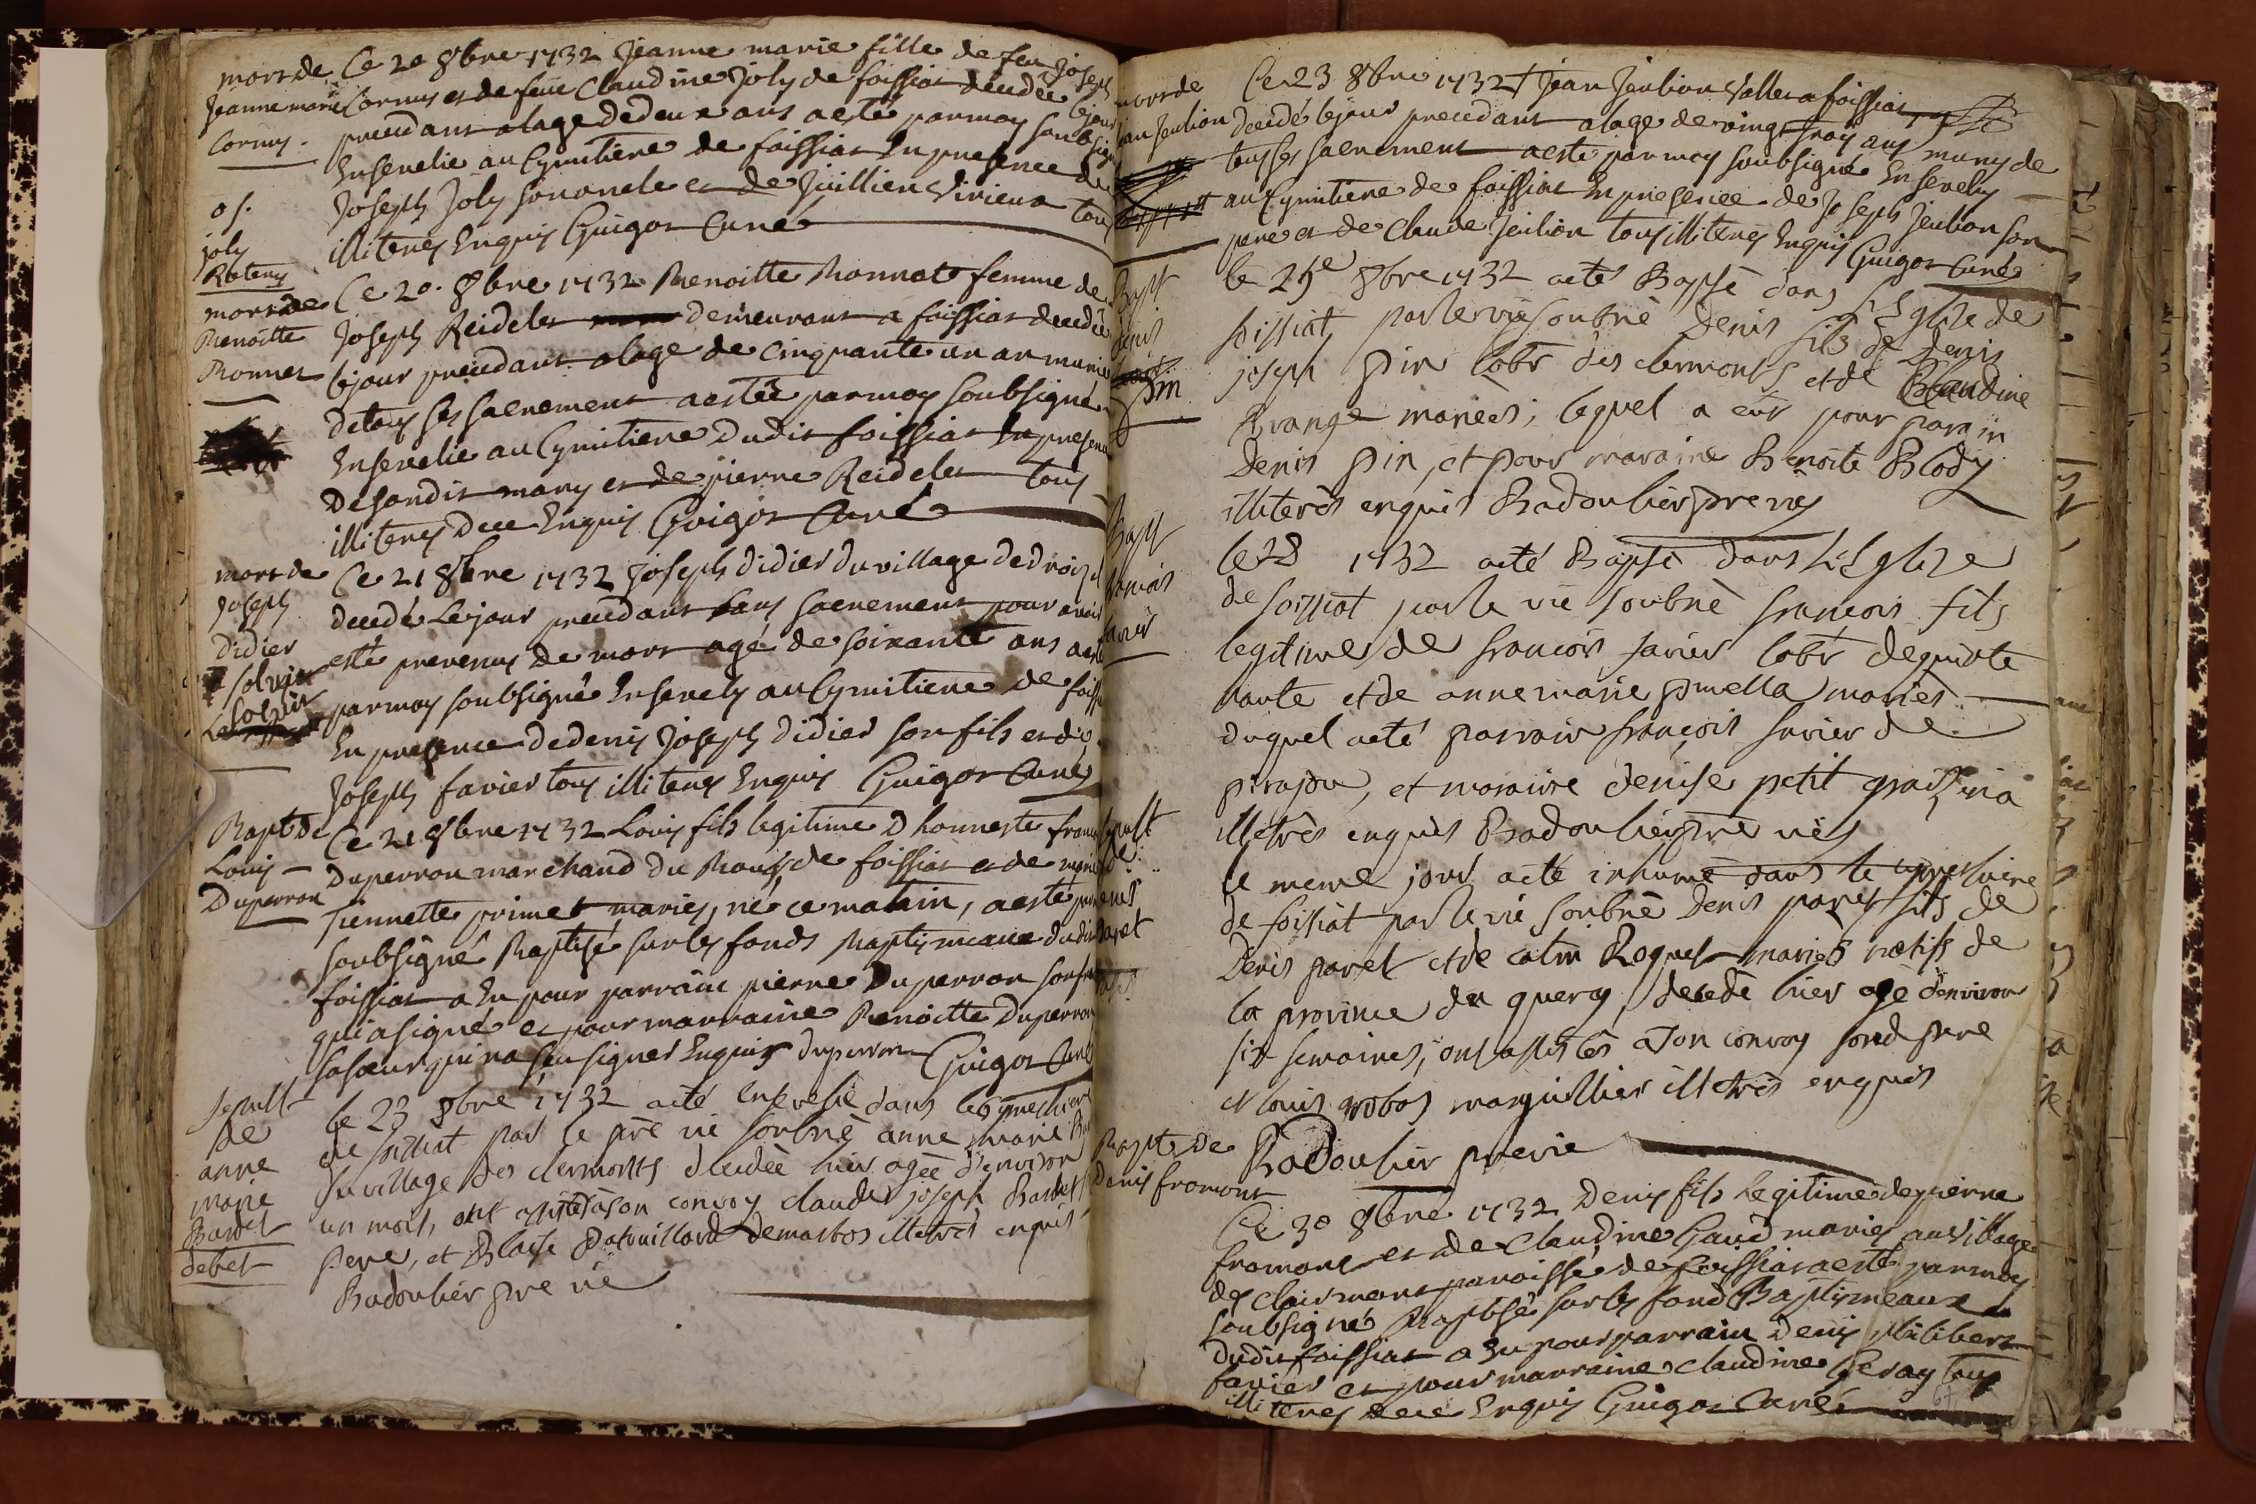 mort de
Jeanne marie
Cornus.
Ce 20 8bre 1732 Jeanne marie fille de feu Joseph
Cornus et de feüe Claudine Joly de foissiat decedée le jour
precedant alage de deux ans a esté par moy soubsigné
Ensevelie au Cymitiere de foissiat En presence de
Joseph Joly son oncle et de Juillien Virieux tous
illiterés Enquis Guigot Curé
mort de
Benoitte
Monnet
Ce 20. 8bre 1732 Benoitte Monnet femme de
Joseph Reidelet demeurant a foissiat decedée
le jour precedant alage de cinquante un an munie
de tous ses sacrement a estée par moy soubsigné
Ensevelie au Cymitiere dudit foissiat En presence
de sondit mary et de pierre Reidelet tous
illiterés de ce Enquis Guigot Curé
mort de
Joseph
didier
Ce 21 8bre 1732 Joseph didier du village de
decedé le jour precedant sans sacrement pour avoir
esté prevenus de mort agé de soixante ans a esté
par moy soubsigné Ensevely au Cymitiere de foissiat
En presence de denis Joseph didier son fils et de
Joseph favier tous illiterés Enquis Guigot Curé
Bapt de
Louis
Duperron
Ce 21 8bre 1732 Louis fils legitime D honneste françois
Duperron marchand du Bourg de foissiat et de marie
Piennette primet mariés, né ce matin, a esté par
soubsigné Baptisé sur les fonds Baptismeaux dudit
foissiat a Eu pour parrain pierre Duperron son
qui a signé et pour marraine Benoitte Duperron
sa soeur qui na sçu signer Enquis duperron Guigot Curé
sepult
de
anne
marie
Bardet
debet
le 23 8bre 1732 a été ensevelie dans le cymethiere
de foissiat par le pre vic soubné anne marie
du village des clermonts decedée hier agée d'environ
un mois, ont assisté a son convoy claude joseph Bardet
pere, et Blaise Patouillard demarbos illetrés enquis
Badoulier pre vic
mort de
jean Jeulion
Ce 23 8bre 1732 Jean Jeulion Vallet a foissiat
decedé le jour precedant alage de vingt trois ans muny de
tous ses sacrement a esté par moy soubsigné Ensevely
au Cymitiere de foissiat En presence de Joseph Jeulion son
pere et de Claude Jeulion tous illiterés Enquis Guigot Curé
Bapt
denis
pin
le 25e 8bre 1732 a été Bapsé dans l'Eglise de
foissiat par le vic soubné Denis fils de Denis
joseph pin labr des clermonts et de Claudine
Brange mariés; lequel a eut pour parain
Denis pin, et pour maraine Benoite Blody
illiterés enquis Badoulier pre vic
Bapt
françois
favier
le 28 1732 a été Bapsé dans l'Eglise
de foissiat par le vic soubné françois fils
legitime de françois favier labr de
et de anne marie mariés
duquel a été parrain françois favier de
pirajou, et maraine denise petit
illetrés enquis Badoulier pre vic
sepult
de
denis
paret
le meme jour a été inhumé dans le cymethiere
de foissiat par le vic soubné Denis paret fils de
Denis paret et de catrin Roquet mariés natifs de
la province du quercy, decedé hier agé d'environ
six semaines, ont assistés a son convoy son pere
et louis robos marguillier illetrés enquis
Badoulier pre vic
Bapt de
denis fromont
Ce 30 8bre 1732 Denis fils legitime de pierre
fromont et de Claudine Gaud mariés au village
des clairmont paroisse de foissiat a esté par moy
soubsigné Baptisé sur les fond Baptismeaux
dudit foissiat a Eu pour parrain Denis philibert
favier et pour marraine claudine tous
illiterés de ce Enquis Guigot Curé